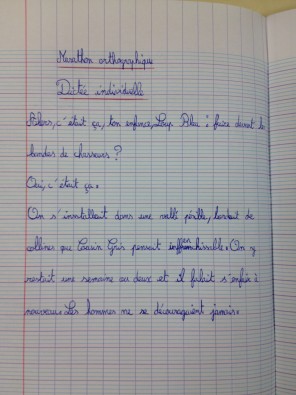 Marathon orthographique
Dictée individuelle
Alors, c'était ça, ton enfance, Loup Bleu : fuire devant les
bandes de chasseurs ?
Oui, c'était ça.
On s'inntallait dans une vallé pésible, bordait de
collines que Cousin Gris pensait infranchissable. On y
restait une semaine ou deux et il falait s'enfuir à
nouveau. Les hommes ne se décourageaient jamais.